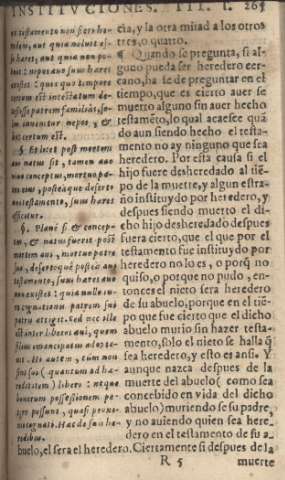 INSTITVCIONES. III. I. 265
et testamento non sit he-
res, aut quia noluit esse
hæres, aut quia non po-
test
certum est intestatum de-
cessisse patrem familiâs,
certum est.
¶ Et licet post mortem
aui natus sit, tamen auo
viuo conceptus, mortuo pa-
tre eius, posteaque deserto
testamento, suus hæres
efficitur.
¶. Planè si & concep-
tus, & natus fuerit post
mortem aui, mortuo patre
suo, desertoque postea aui
testamento, suus hæres auo
non existit: quia nullo iu-
re cognationis patrem sui
patris attigit. Sed nec ille
est inter liberos aui, quem
filius emancipatus adopta-
uit. Hi autem, cùm non
sint sui (quantum ad hæ-
reditatem) liberi: neque
bonorum possessionem pe-
tere possunt, quasi proxi-
mi cognati. Hæc de suis hæ-
redibus.
cia, y la otra mitad a los otros
tres, o quatro.
¶ Quando se pregunta, si al-
guno pueda ser heredero cer-
cano, ha se de preguntar en el
tiempo, que es cierto auer se
muerto alguno sin auer hecho
testamẽto, lo qual acaesce quã
do aun siendo hecho el testa-
mento no ay ninguno que sea
heredero. Por esta causa si el
hijo fuere desheredado al tiẽ-
po de la muerte, y algun estra-
ño instituydo por heredero, y
despues siendo muerto el di-
cho hijo desheredado despues
fuera cierto, que el que por el
testamento fue instituydo por
heredero no lo es, o porq̃ no
quiso, o porque no pudo, en-
tonces el nieto sera heredero
de su abuelo, porque en el tiẽ-
po que fue cierto que el dicho
abuelo murio sin hazer testa-
mento, solo el nieto se halla q̃
sea heredero, y esto es ansi. Y
aunque nazca despues de la
muerte del abuelo ( como sea
concebido en vida del dicho
abuelo) muriendo se su padre,
y no auiendo quien sea here-
dero en el testamento de su a-
buelo, el sera el heredero. Ciertamente si despues de la
R 5 muerte